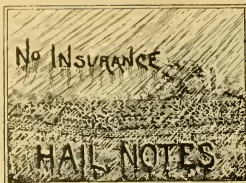 No INSURANCE
HAIL NOTES